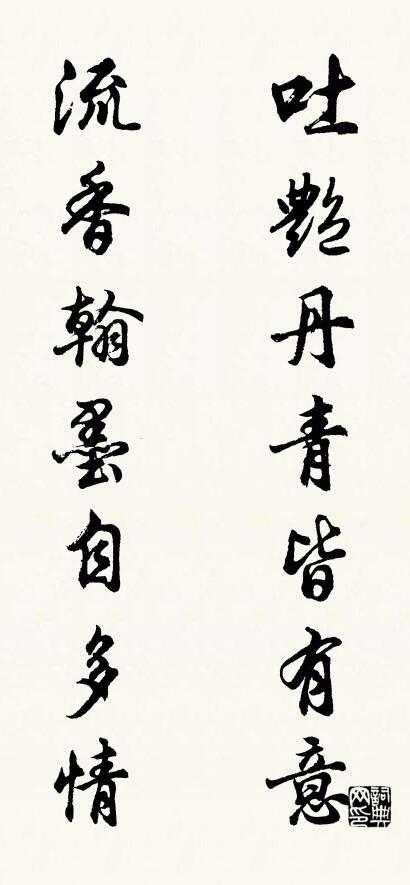 吐艷丹青皆有意
流香翰墨自多情
詞典网印